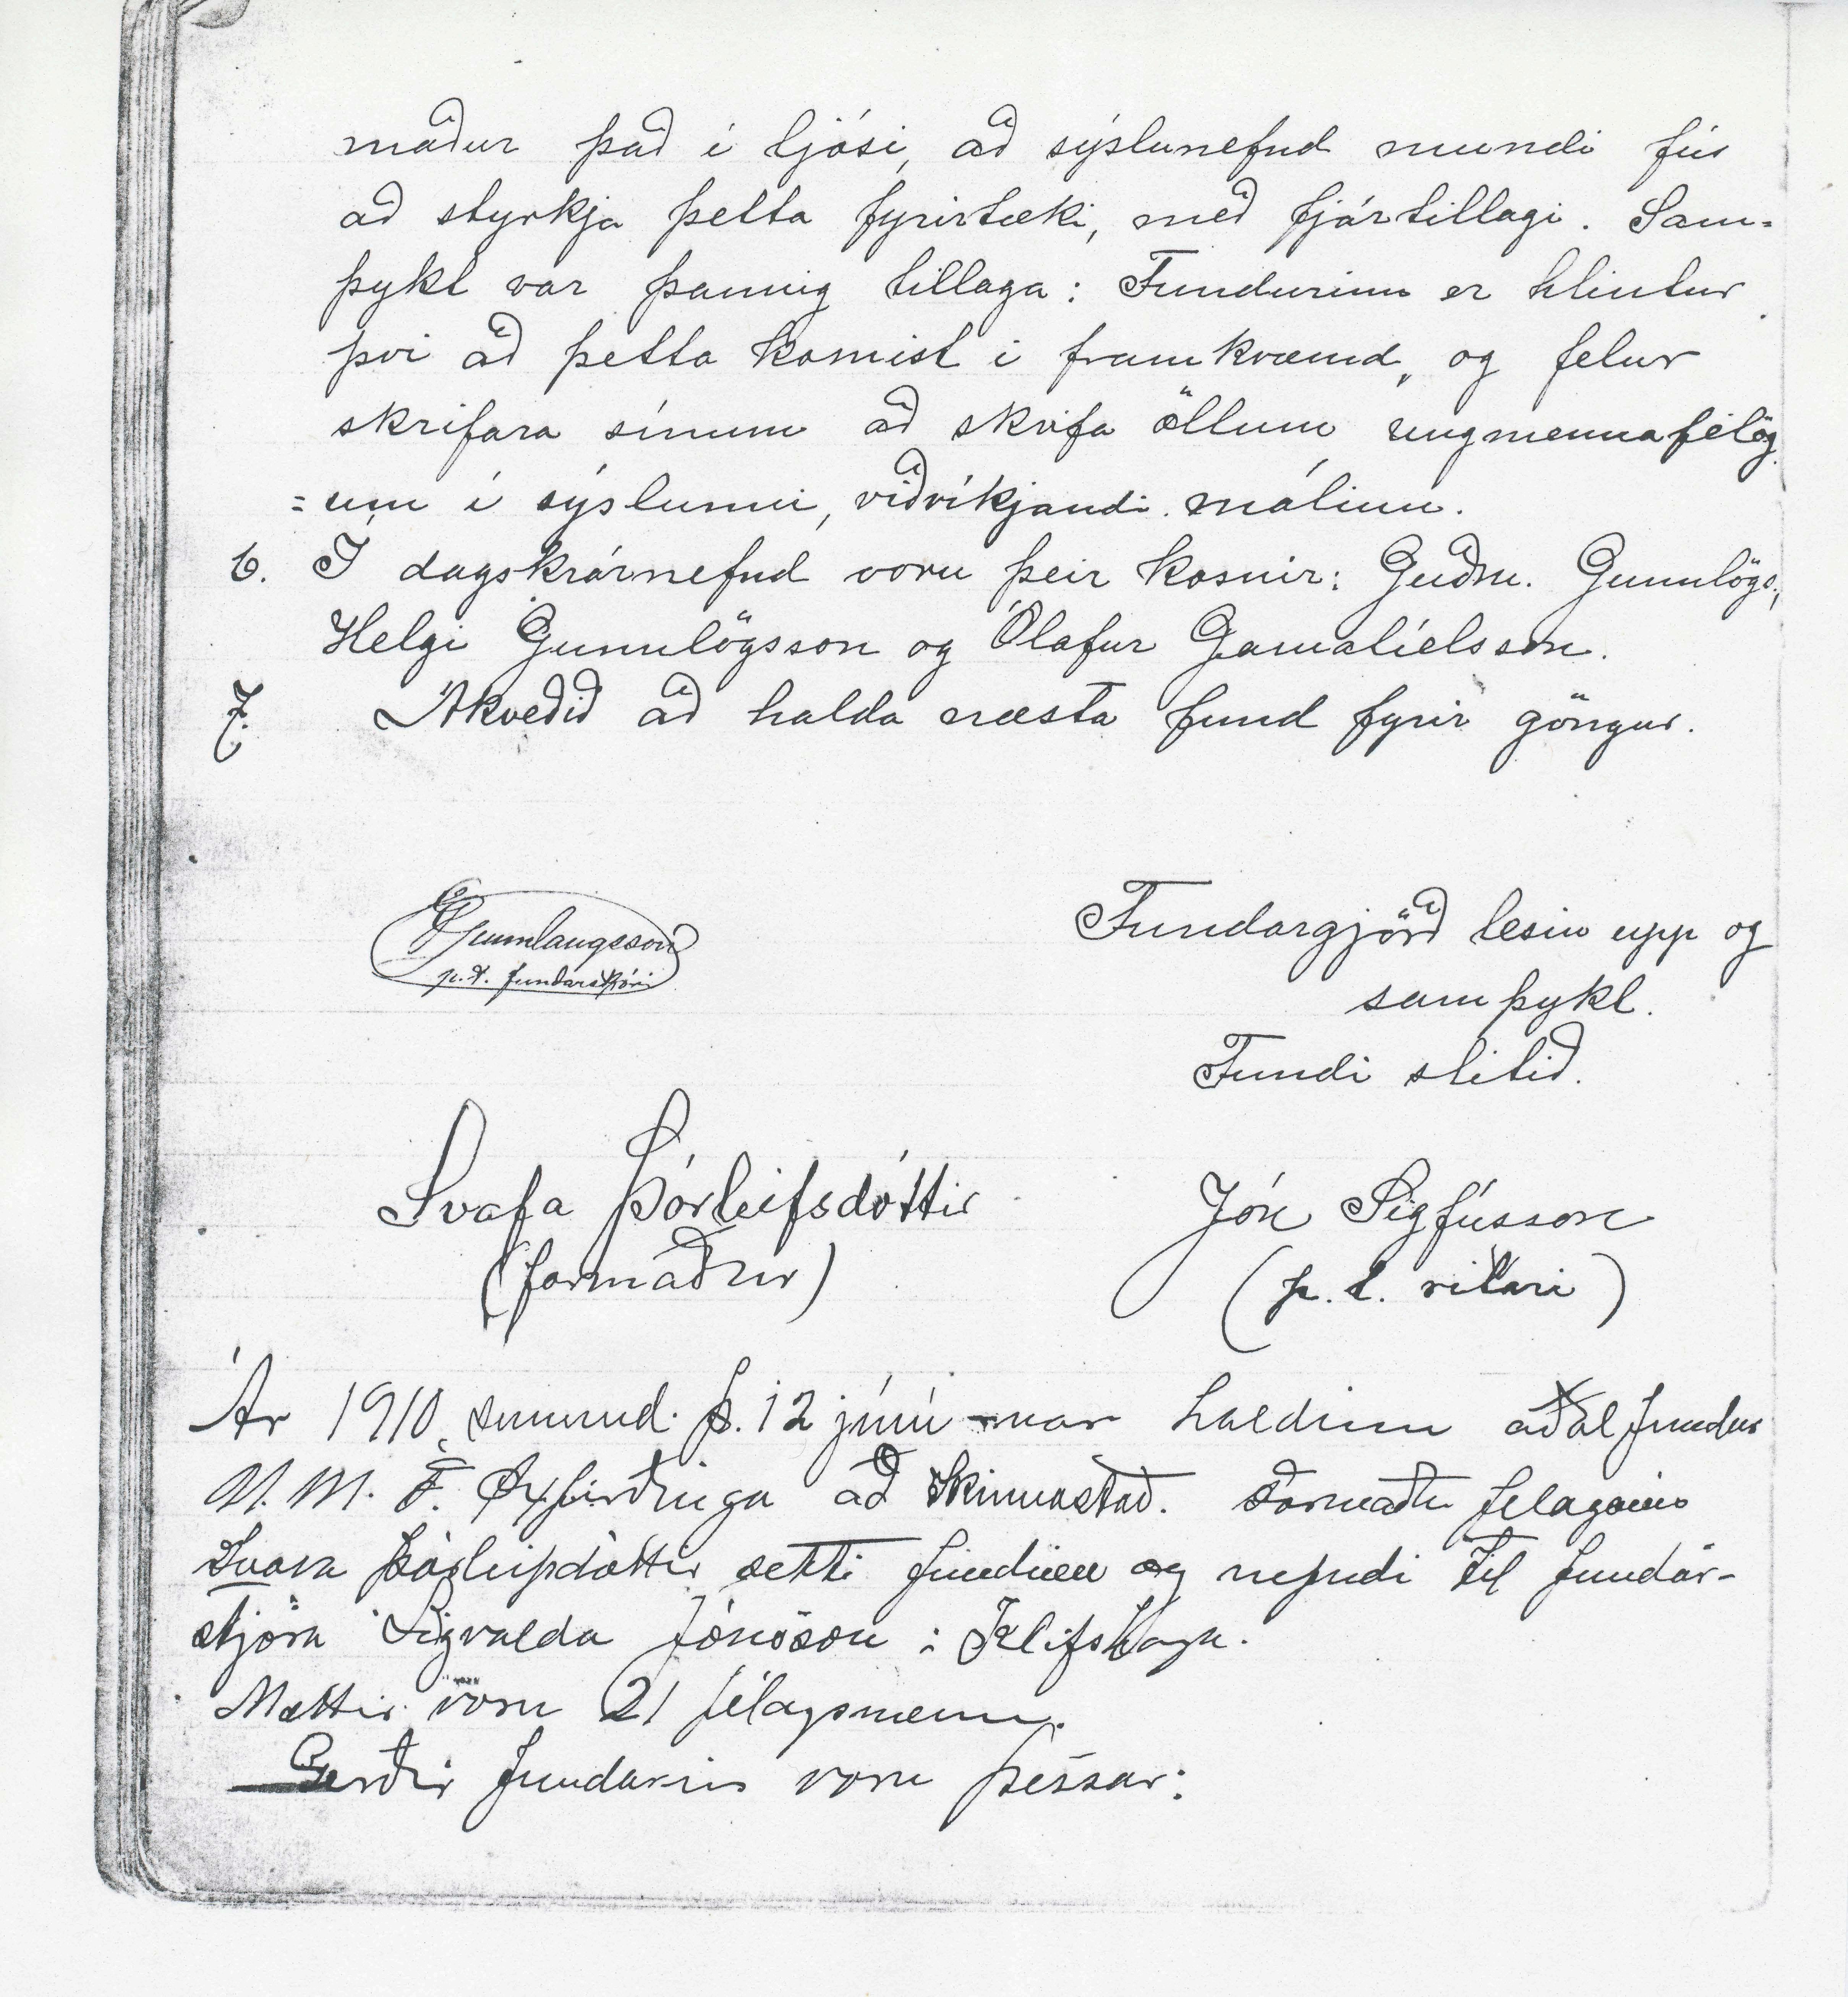 maður það í ljósi, að sýslunefnd mundi fús
að styrkja þetta fyrirtæki, með fjártillagi. Sam=
þykt var þannig tillaga: Fundurinn er hlintur
því að þetta komist í framkvæmd, og felur
skrifara sínum að skrifa öllum ungmennafélög
=um í sýslunni, viðvíkjandi málinu.
6. Í dagskrárnefnd voru þeir kosnir: Guðm. Gunnlögs.,
Helgi Gunnlögsson og Ólafur Gamalíelsson.
7. Ákveðið að halda næsta fund fyrir göngur.
Gunnlaugsson
p.t. fundarstjóri
Fundargjörð lesin upp og
samþykt.
Fundi slitið.
Svafa Þórleifsdóttir
(formaður)
Jón Sigfússon
(p.t. ritari)
Ár 1910, sunnud. þ. 12 júní var haldinn aðalfundur
U. M. F. Öxfirðinga að Skinnastað. Formaður felagsins
Svava Þórleifsdóttir setti fundinn og nefndi til fundar-
stjóra Sigvalda Jónsson í Klifshaga.
Mættir voru 21 félagsmenn.
Gerðir fundarins voru þessar: